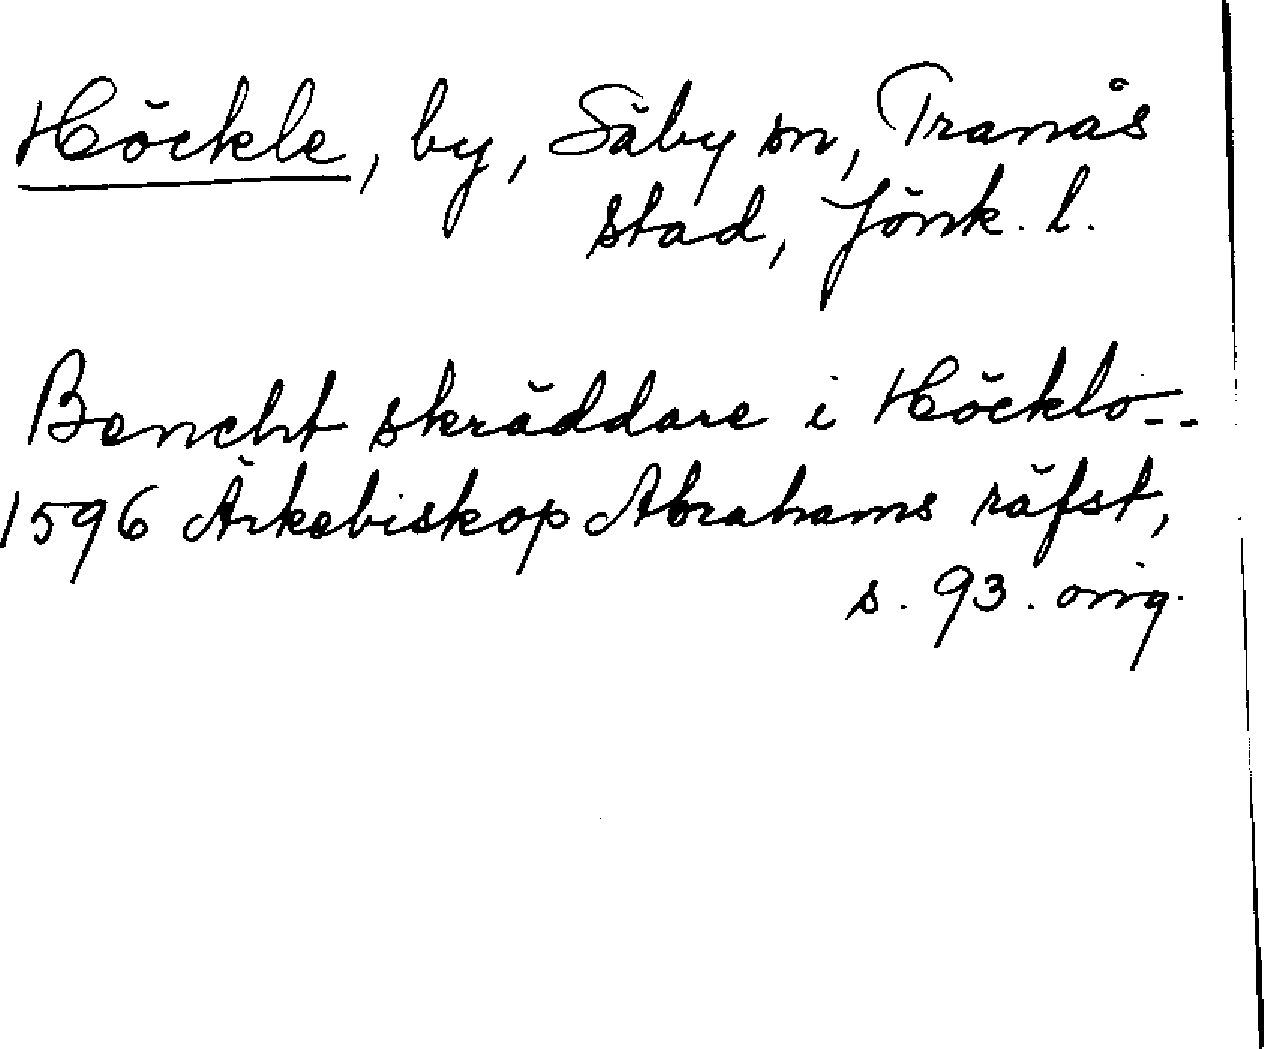 Höckle, by, Säby sn, Tranås
stad, Jönk. l.
Bencht skräddare i Höcklö--
1596 Ärkebiskop Abrahams räfst,
s. 93. orig.